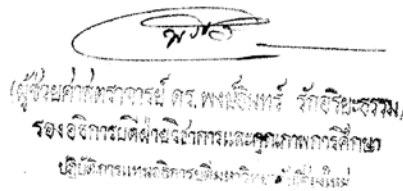 (ผู้ช่วยศาสตราจารย์ ดร.พงษ์อินทร์ รักอริยะธรรม)
รองอธิการบดีฝ่ายวิชาการและคุณภาพการศึกษา
ปฏิบัติการแทนอธิการบดีมหาวิทยาลัยเชียงใหม่